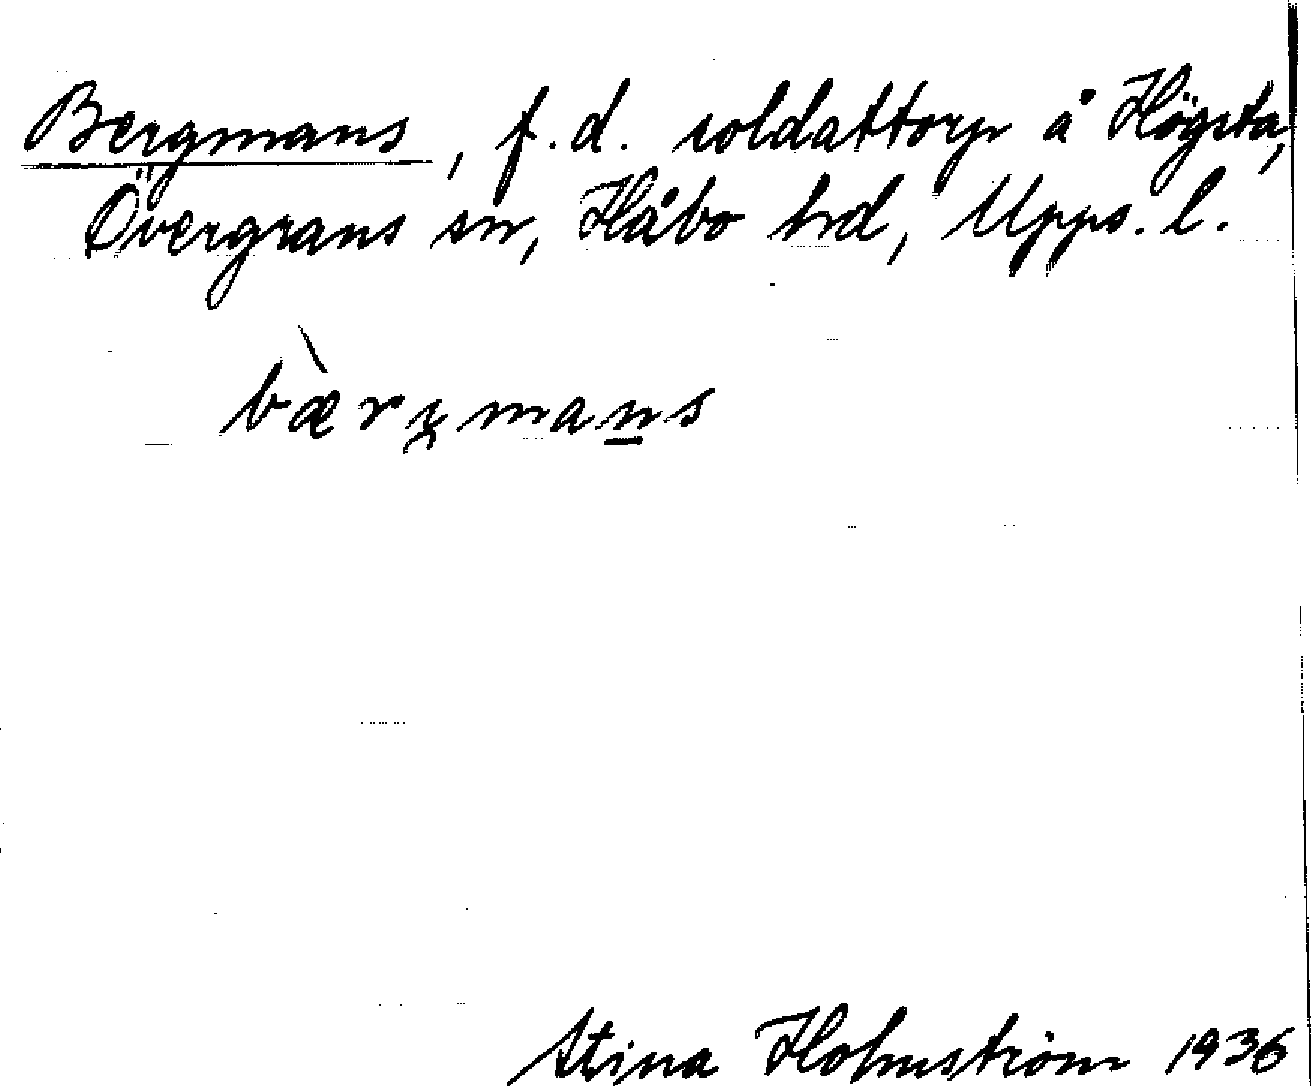 Bergmans, f.d. soldattorp å Högsta,
Övergrans sn, Håbo hd, Upps. l.
bæ̀rʒmans
Stina Holmström 1936